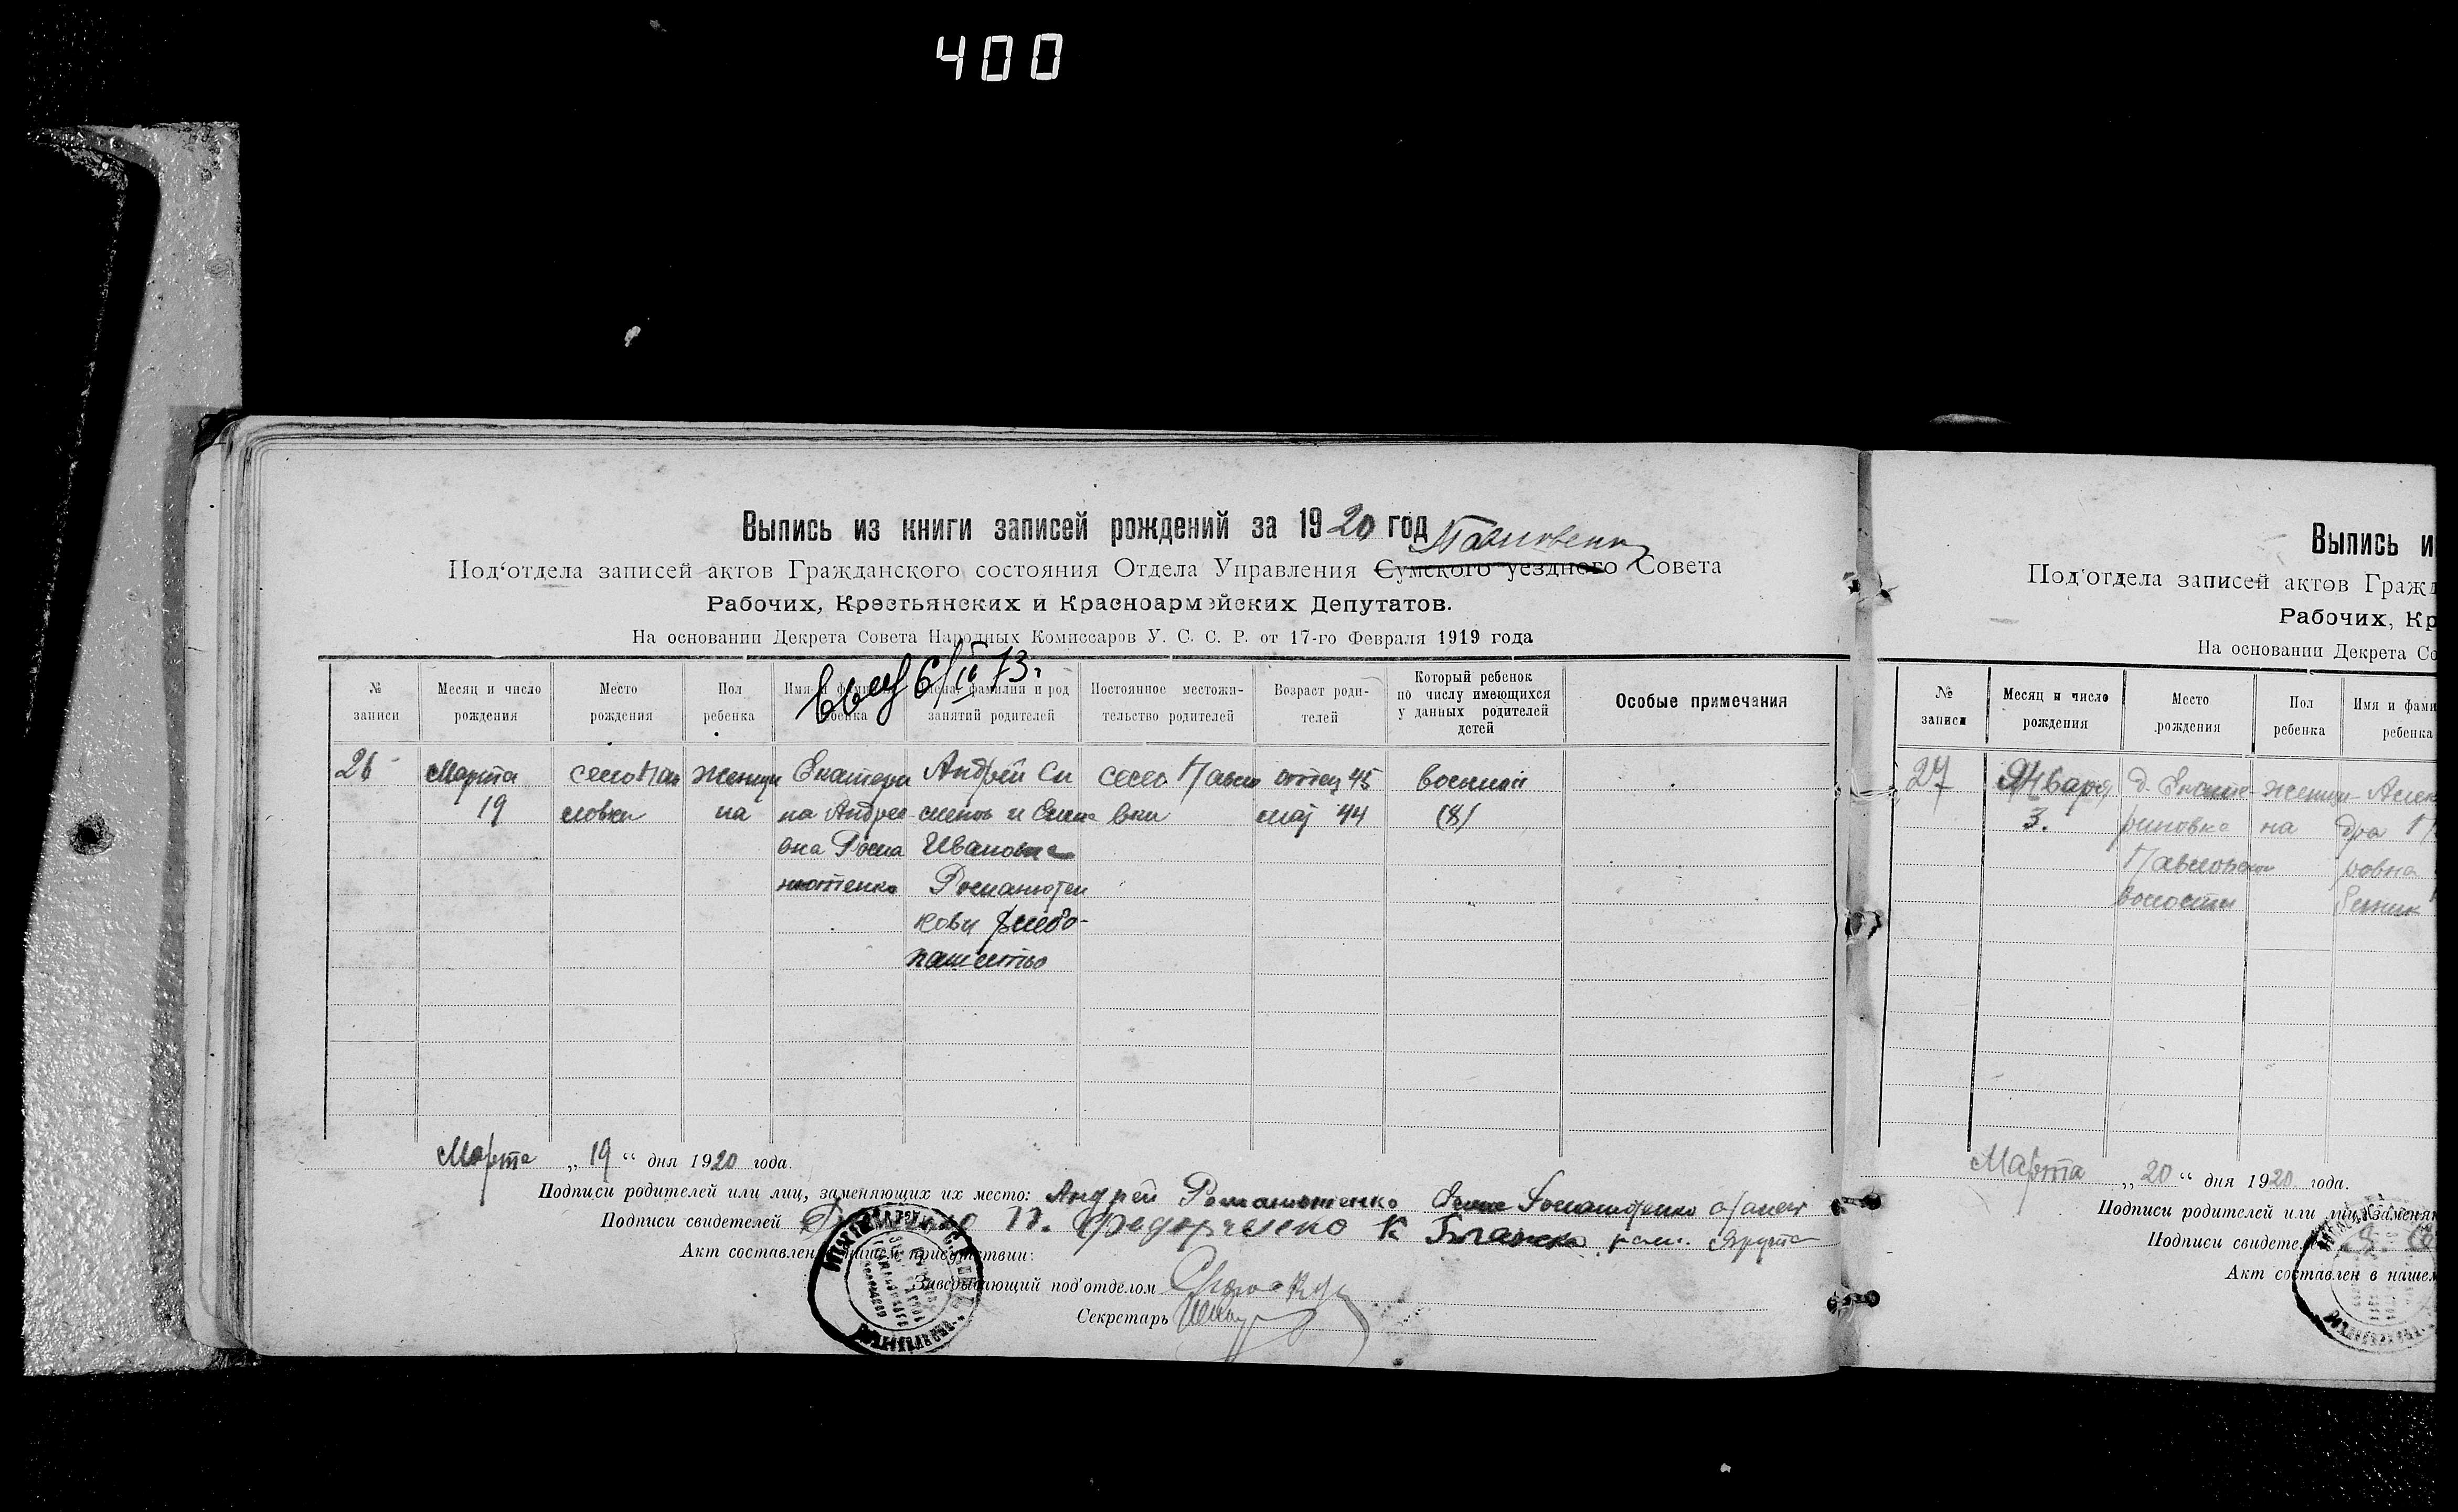 400
Выпись из книги записей рождений за 1920 год
Под‘отдела записей актов Гражданского состояния Отдела Управления Сумского уездного Совета
Рабочих, Крестьянских и Красноармейских Депутатов.
На основании Декрета Совета Народных Комиссаров У. С. С. Р. от 17-го Февраля 1919 года
6/IV 73г.
№ записи
Месяц и число рождения
Место рождения
Пол ребенка
Имя и фамилия ребенка
Имена, фамилия и род занятий родителей
Постоянное местожи-
тельство родителей
Возраст роди-
телей
Который ребенок
по числу имеющихся
у данных родителей
детей
Особые примечания
26
Марта
19
село Пав
ловки
женщи
на
Екатери
на Андре
вна Рома
нютенко
Андрей Си
Ивановна
Романютен
кови хлебо-
пашество
село Павло
вки
отец 45
мат 44
восьмой
(8)
Марта „19“ дня 1920 года.
Подписи родителей или лиц, заменяющих их место: Андрей Романютенко
Подписи свидетелей П. Федорченко К
Акт составлен в нашем присутствии:
Заведывающий под‘отделом
Секретарь
Выпись и
Под‘отдела записей актов Гражд
Рабочих, Кр
На основании Декрета Со
№ записи
Месяц и число рождения
Место рождения
Пол ребенка
Имя и фами
ребенка
27
Января
3.
д. Екате
риновка
Павловской
волости
женщи
на
Алек
дра П
ровна
Марта „20“ дня 1920 года.
Подписи родителей или лиц, заменя
Подписи свидете
Акт составлен в нашем